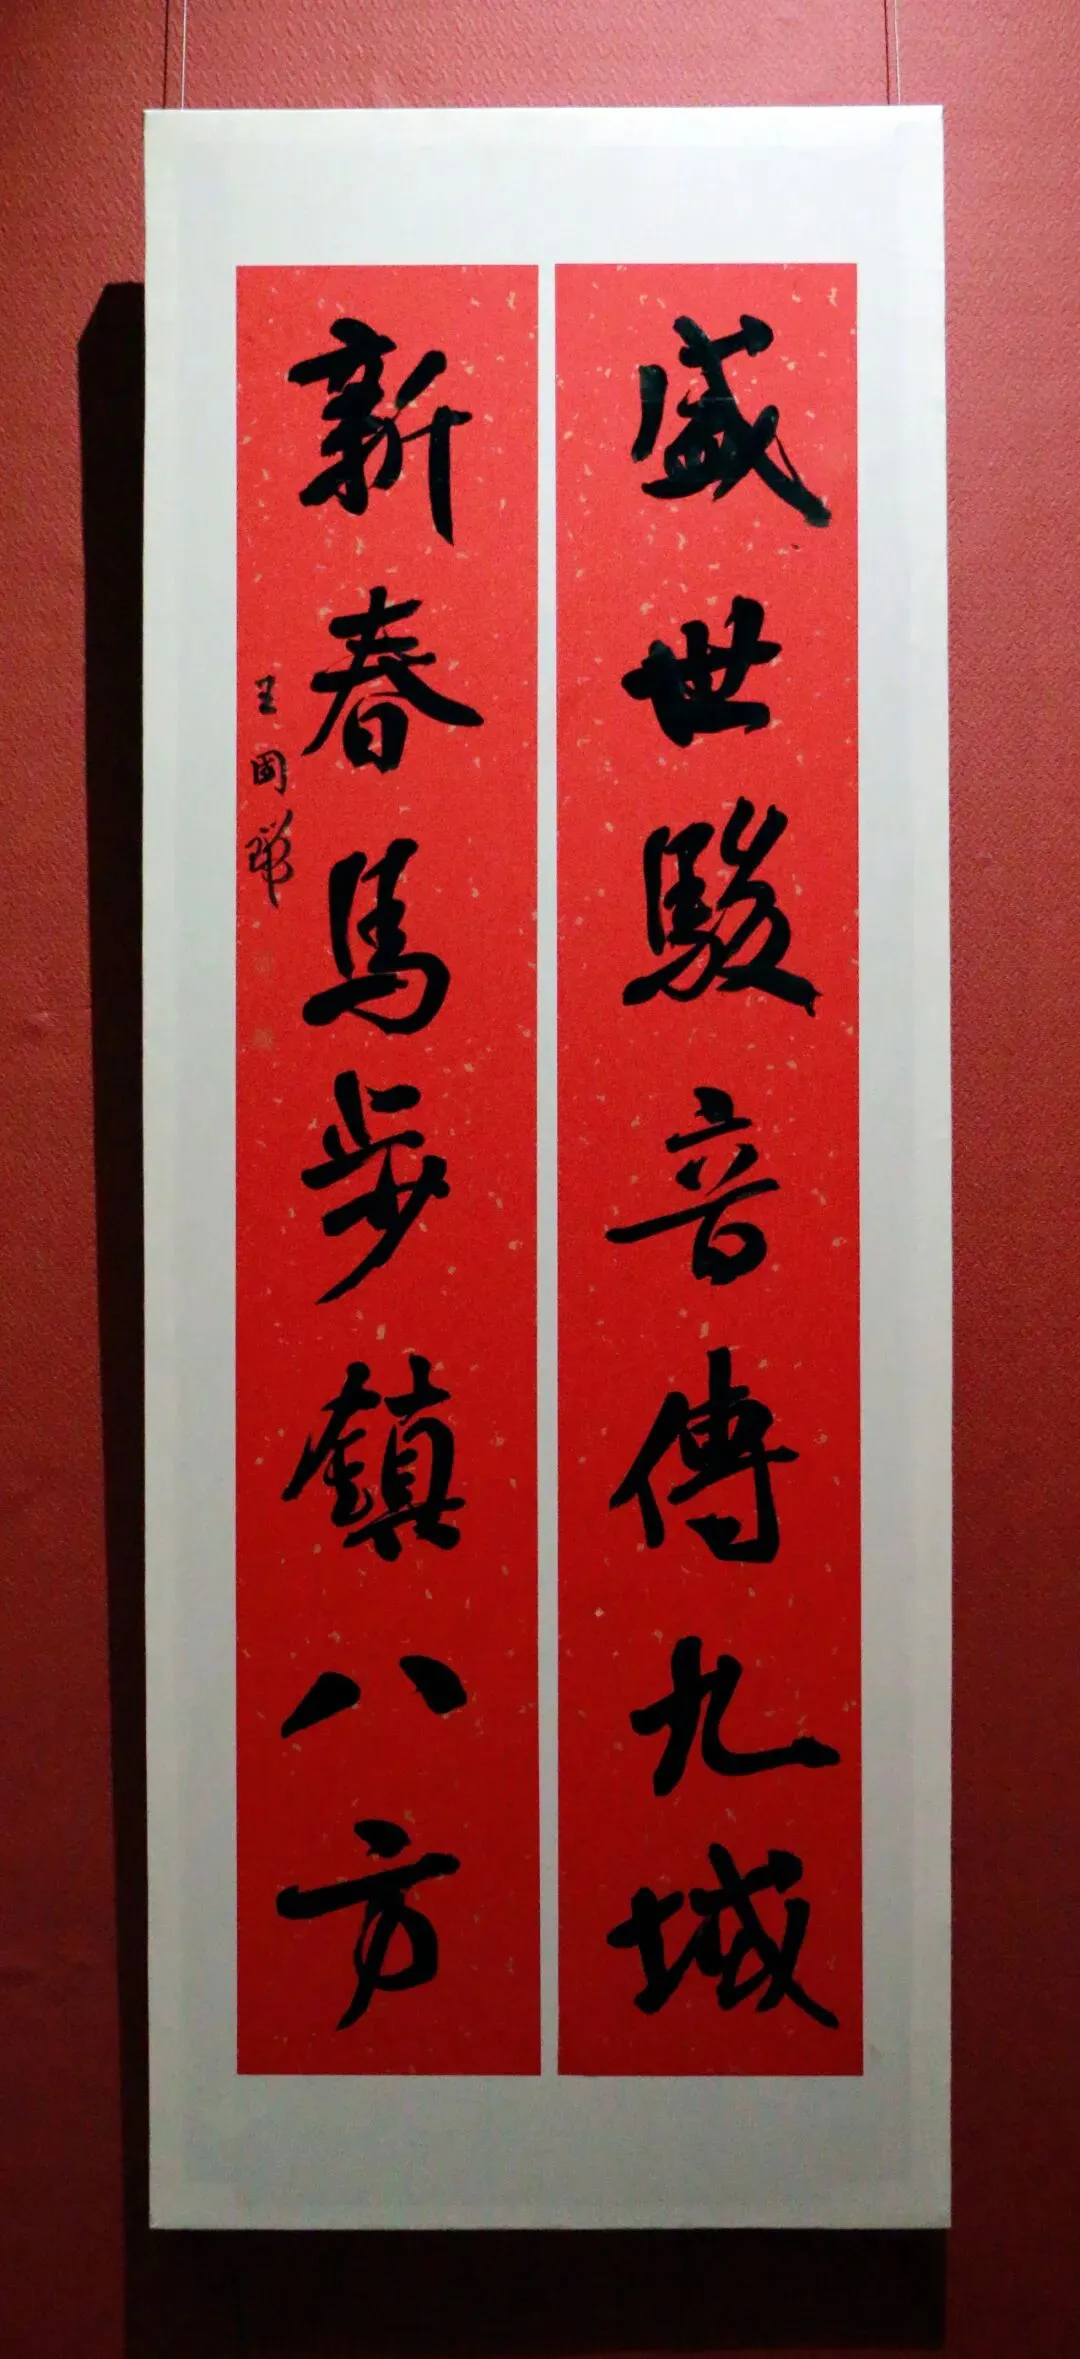 盛世駿音傳九域
新春馬步鎮八方
王国瑞